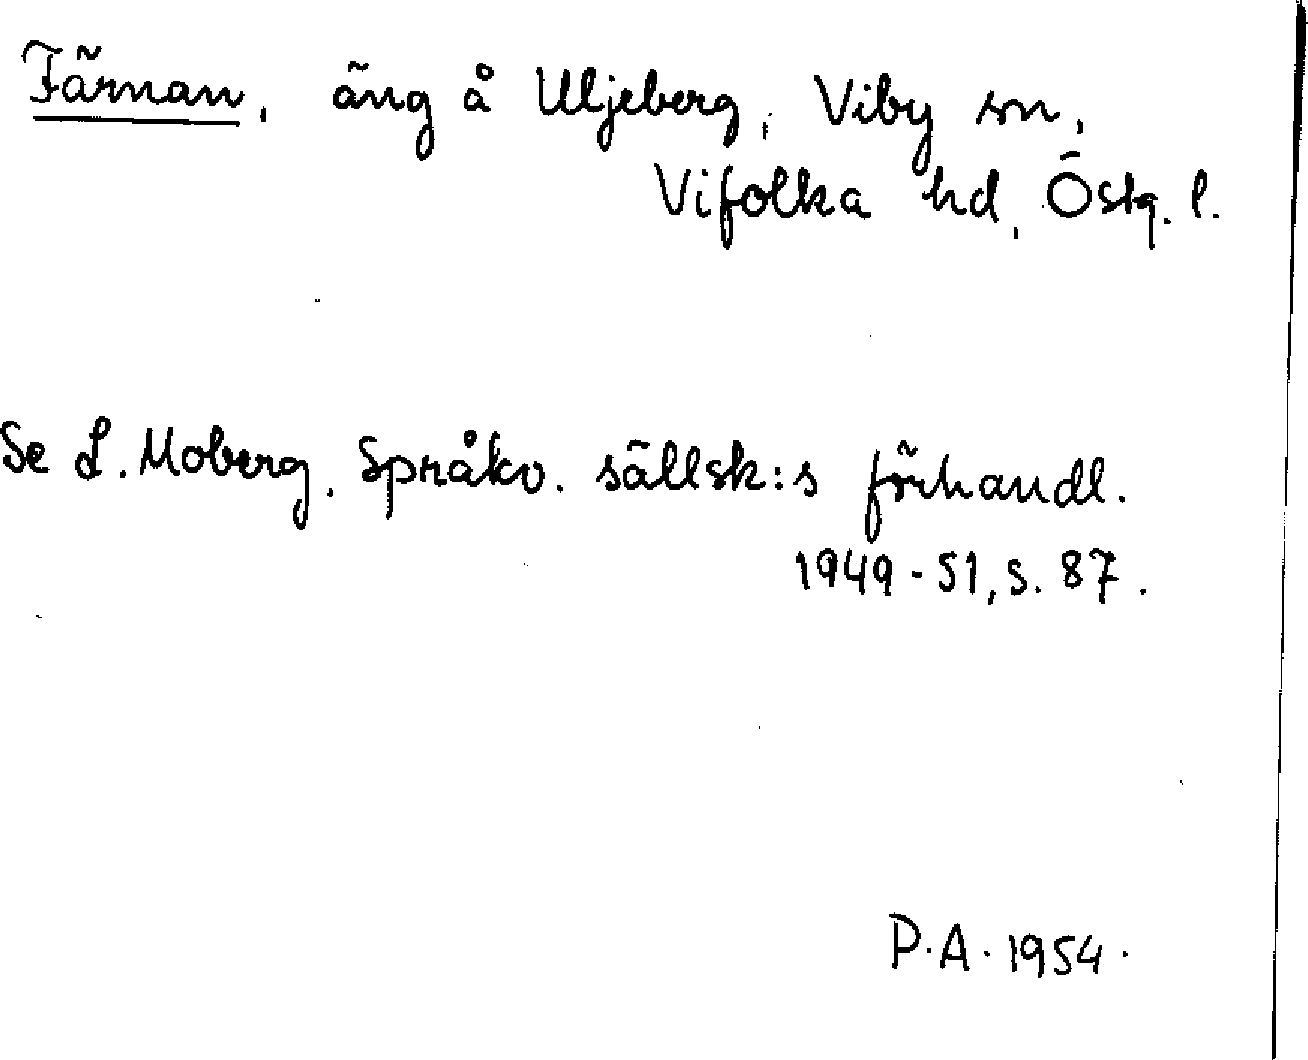 Färnan, äng å Uljeberg, Viby sn,
Vifolka hd, Östg. l.
Se L. Moberg, Språkv. sällsk:s förhandl.
1949-51, s. 87.
P.A. 1954.